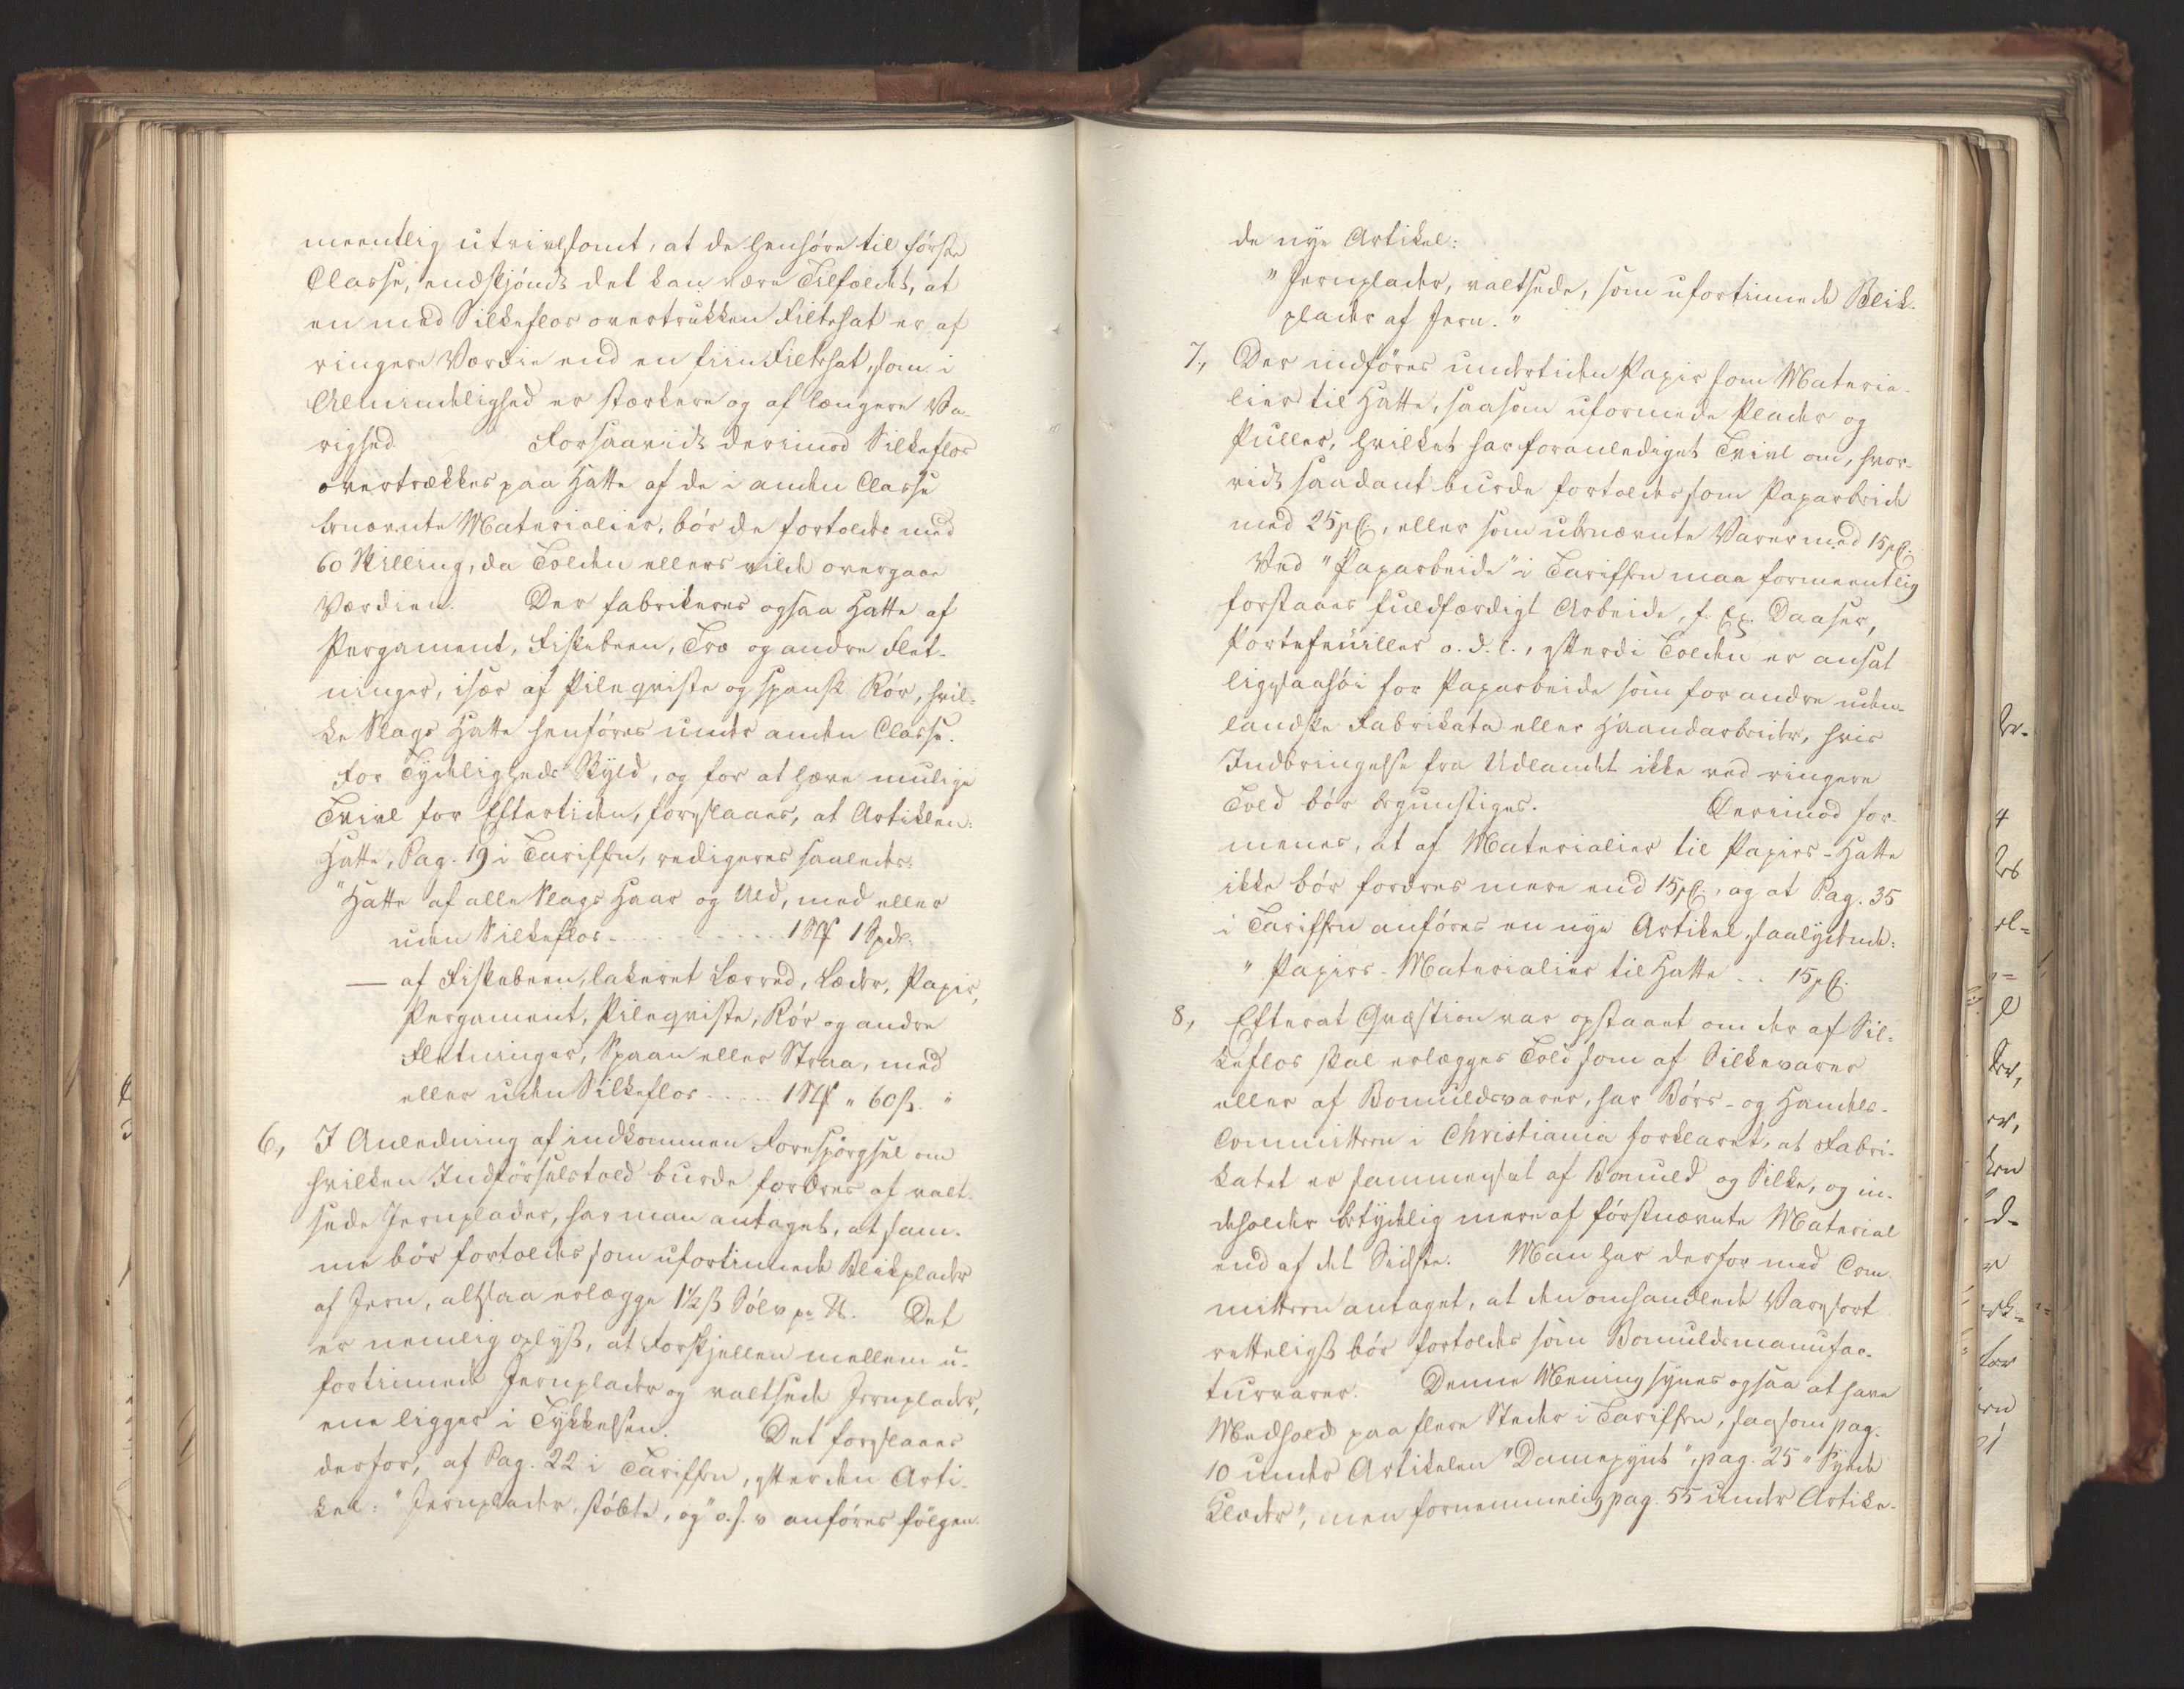 meentlig utvivlsomt, at de henhöre til förste
Classe, endskjöndt det kan være Tilfældet, at
en med Silkeflor overtrukken Filtehat er af
ringere Værdie end en fiin Filtehat, som i
Almindelighed er stærkere og af længere Va-
righed. Forsaavidt derimod Silkeflor
overtrækkes paa Hatte af de i anden Classe
benævnte Materialier, bör de fortoldes med
60 Skilling, da Tolden ellers vilde overgaae
Værdien. Der fabrikeres ogsaa Hatte af
Pergament, Fiskebeen, Træ og andre Flet-
ninger, især af Pileqviste og spansk Rör, hvil-
ke Slags Hatte henföres under anden Classe.
For Tydeligheds Skyld, og for at hæve mulige
Tvivl for Eftertiden, foreslaaes, at Artiklen:
Hatte, Pag. 19 i Tariffen, redigeres saaledes:
"Hatte af alle Slags Haar og Uld, med eller
uden Silkeflor . . . . . . . . . 1 Stk 1 Spd.
— af Fiskebeen, lakeret Lærred, Læder, Papir,
Pergament, Pileqviste, Rör og andre
Fletninger, Spaan eller Straa, med
eller uden Silkeflor . . . . . 1 Stk " 60 ß. "
6., I Anledning af indkommen Forespörgsel om
hvilken Indförselstold burde fordres af valt-
sede Jernplader, har man antaget, at sam-
me bör fortoldes som ufortinnede Blikplader
af Jern, altsaa erlægge 1½ ß Sölv pr ℔. Det
er nemlig oplyst, at Forskjellen mellem u-
fortinnede Jernplader og valtsede Jernplader,
ene ligger i Tykkelsen. Det foreslaaes
derfor, at Pag. 22 i Tariffen, efter den Arti-
kel: "Jernplader, stöbte, og" o. s. v. anföres fölgen-
de nye Artikel:
"Jernplader, valtsede, som ufortinnede Blik-
plader af Jern."
7., Der indföres undertiden Papir som Materia-
lier til Hatte, saasom uformede Plader og
Puller, hvilket har foranlediget Tvivl om, hvor-
vidt saadant burde fortoldes som Paparbeide
med 25 pC., eller som ubenævnte Varer med 15 pC.
Ved "Paparbeide" i Tariffen maa formeentlig
forstaaes fuldfærdigt Arbeide, f. Ex. Daaser,
Portefeuiller o. d. l., efterdi Tolden er ansat
ligesaahöi for Paparbeide som for andre uden-
landske Fabrikata eller Haandarbeider, hvis
Indbringelse fra Udlandet ikke ved ringere
Told bör begunstiges. Derimod for-
menes, at af Materialier til Papirs-Hatte
ikke bör fordres mere end 15 pC., og at Pag. 35
i Tariffen anföres en nye Artikel, saalydende:
"Papirs-Materialier til Hatte . . 15 pC.
8., Efterat Qvæstion var opstaaet om der af Sil-
keflor skal erlægges Told som af Silkevarer
eller af Bomuldsvarer, har Börs- og Handels-
Committeen i Christiania forklaret, at Fabri-
katet er sammensat af Bomuld og Silke, og in-
deholder betydelig mere af förstnævnte Material
end af det Sidste. Man har derfor med Com-
mitteen antaget, at den omhandlede Varesort
retteligst bör fortoldes som Bomuldsmanufac-
turvarer. Denne Mening synes ogsaa at have
Medhold paa flere Steder i Tariffen, saasom pag.
10 under Artikelen "Damepynt", pag. 25 "Syede
Klæder", men fornemmelig pag. 55 under Artike-